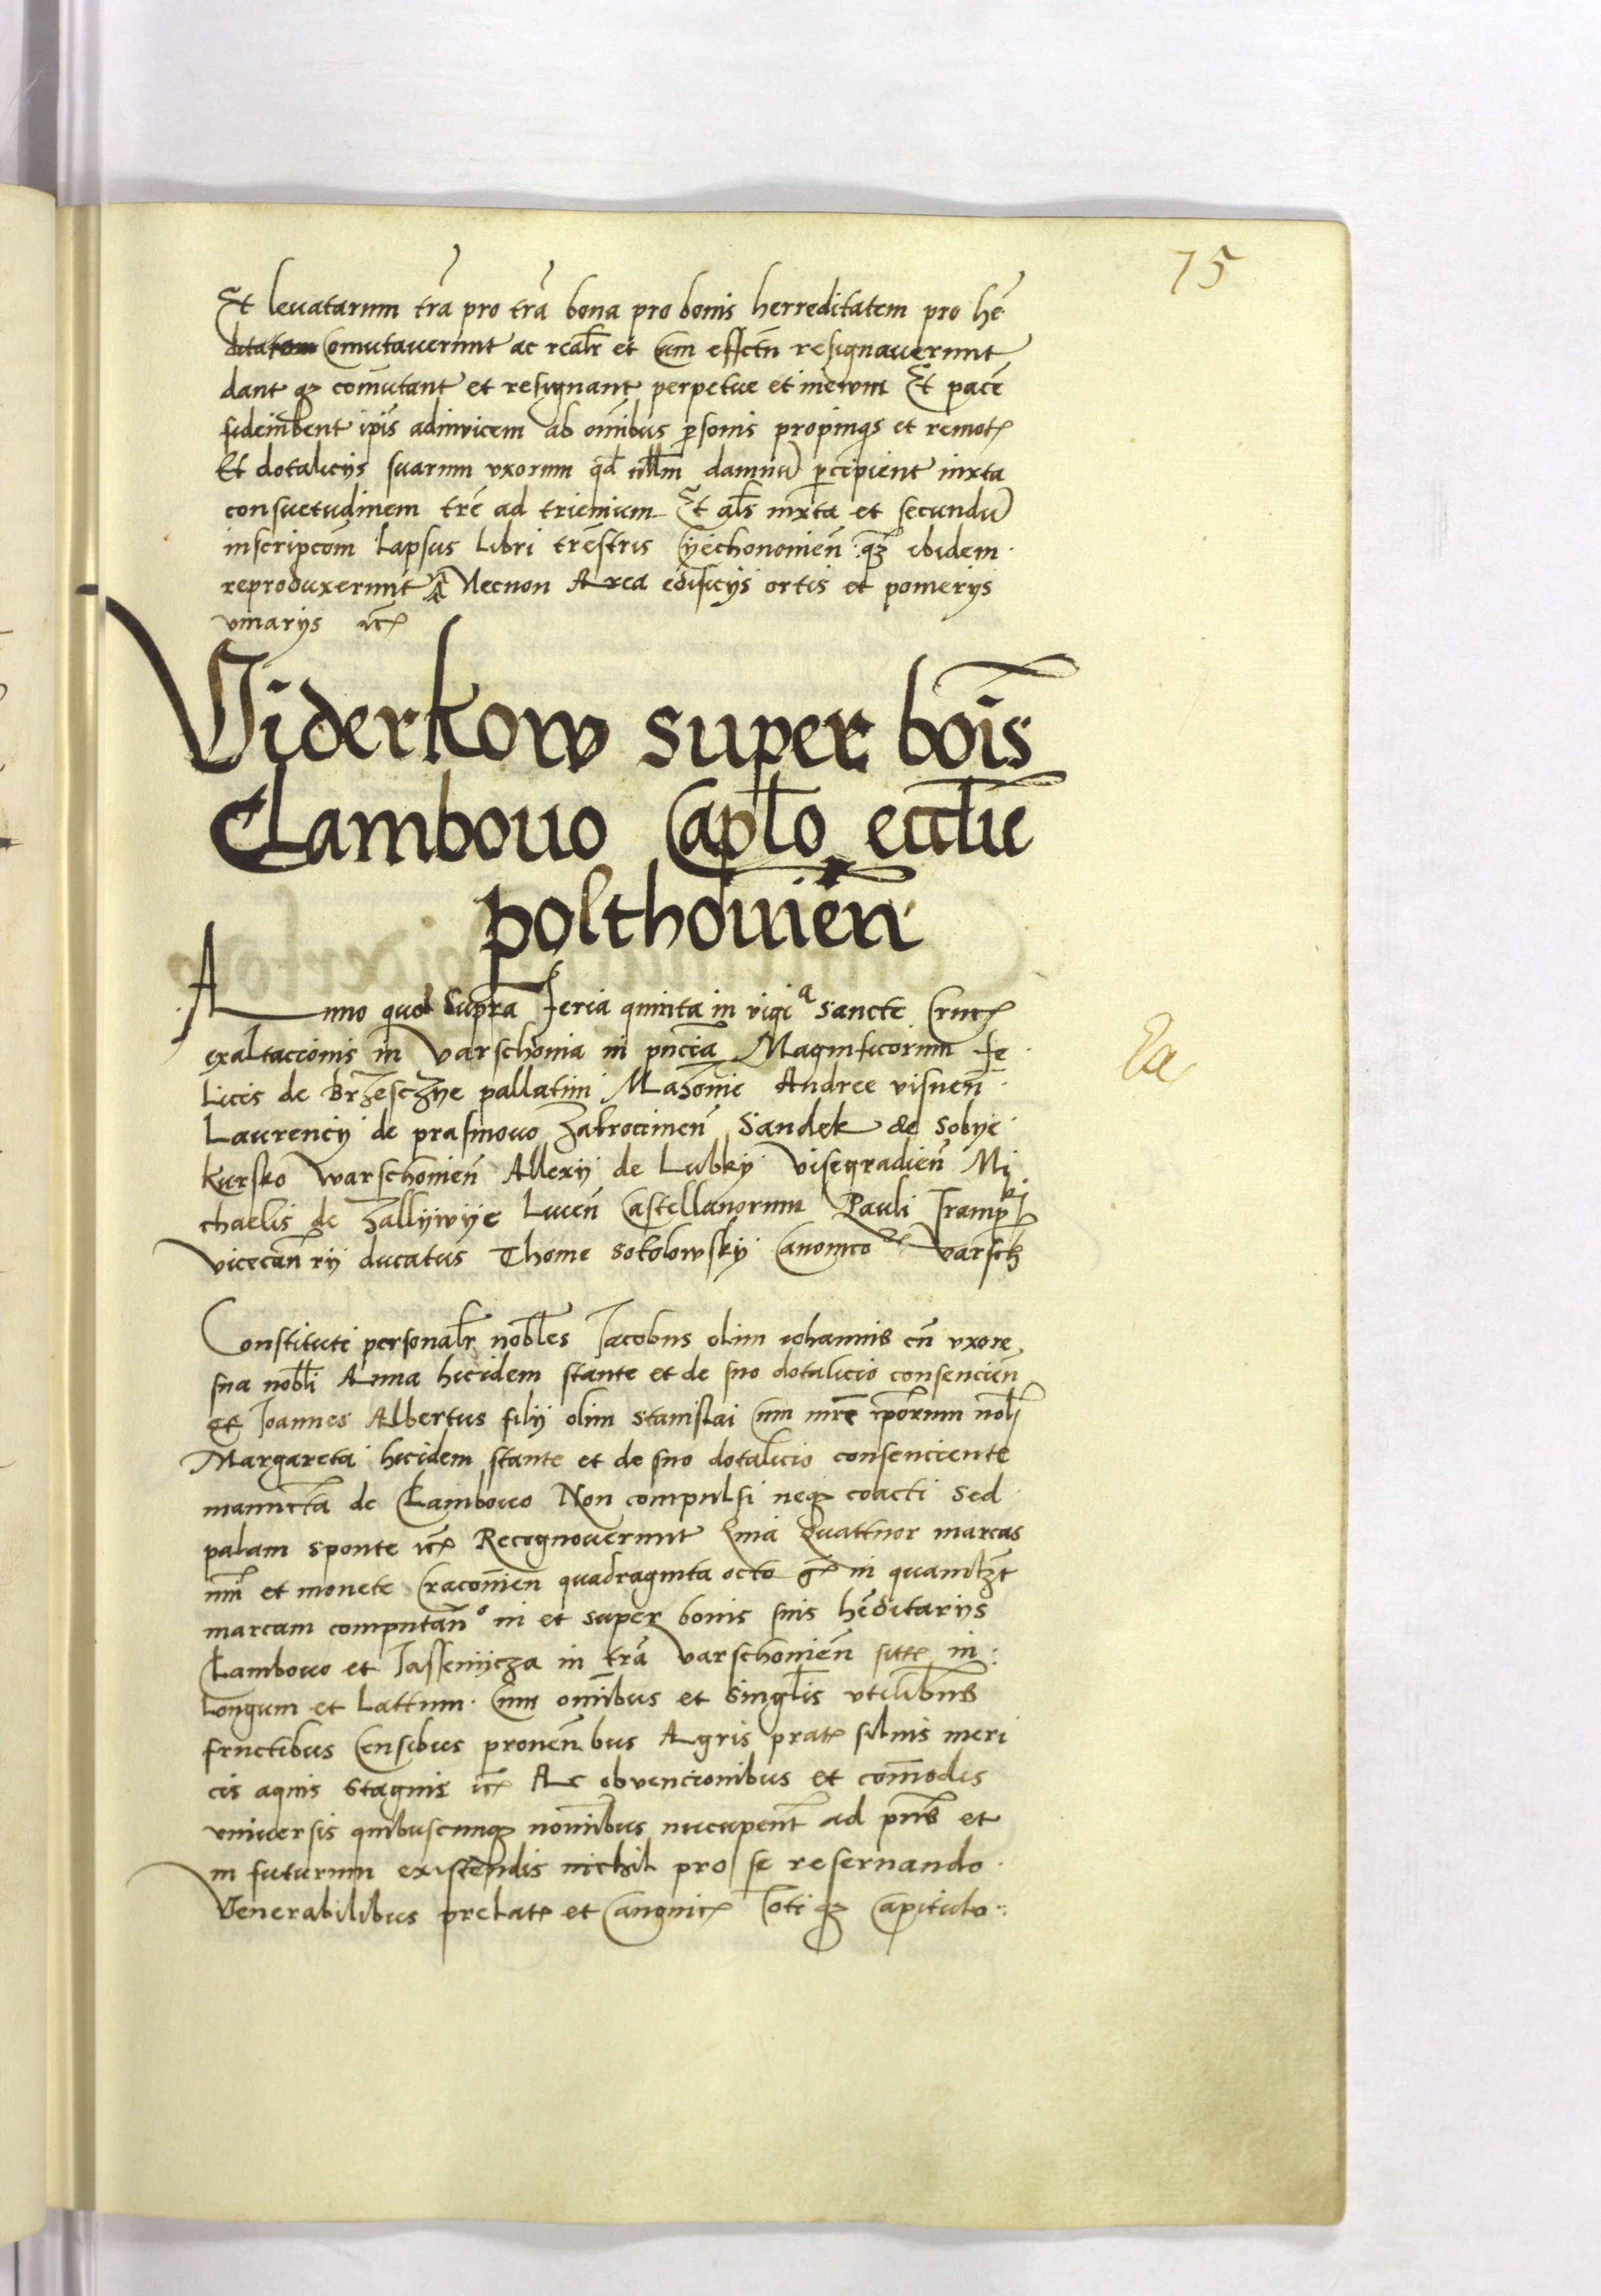 75
Et levatarum tra pro tra bona pro bonis herreditatem pro he
ditatem Comutaverunt ac realr et Cum effctu resignaverunt
dant qz comutant et resignant perpetue et in evum Et pace
fideiubent ipis adinvicem ab omibus psonis propinqs et remot
Et dotalicijs suarum uxorum qd ullm damnu pcipient iuxta
consuetudinem tre ad trienium Et als iuxta et secundu
inscripcom lapsus libri trestris Cyechonomien qz ibidem
reproduxerunt Necnon Area edificijs ortis et pomerijs
vinarijs etc
Viderkow super bois
Clambovo Caplo ecclie
polthovien
Anno quo Supra Feria quinta in vigia Sancte Cruc
exaltaccionis in Varschovia in pncia Magnificorum Fe
licis de Brzesczye pallatini Mazovie Andree visnen
Laurencij de prasmovo Zakrocimen Sandek de Sobye
kursko Warschovien Allexij de Lubky Visegradien Mi
chaelis de Zallywye Liven Castellanorum Pauli
vicecan rij ducatus Thome Sokolowsky Canonico Varsch
La
Constituti personalr nobles Jacobus olim iohannis cu uxore
sua nobli Anna hicidem stante et de suo dotalicio consencien
et Joannes Albertus filij olim Stanislai Cum mre iporum nobl
Margareta hicidem stante et de suo dotalicio consenciente
de Clambovo Non compulsi neqz coacti Sed
palam sponte etc Recognoverunt Quia Quattuor marcas
et monete Cracovien quadraginta octo gr in quamlzt
marcam computan in et super bonis suis heditarijs
Clambovo et Jassenycza in tra Varschovien sitt in
Longum et Lattum Cum omibus et Singlis utilibus
fructibus Censibus proven bus Agris prat silvis meri
cis aquis Stagnis etc Ac obvencionibus et comodis
universis quibuscunqz nomibus nucupent ad pns et
in futurum existendis nichil pro se reservando
Venerabilibus prelat et Canonic totiqz Capitulo